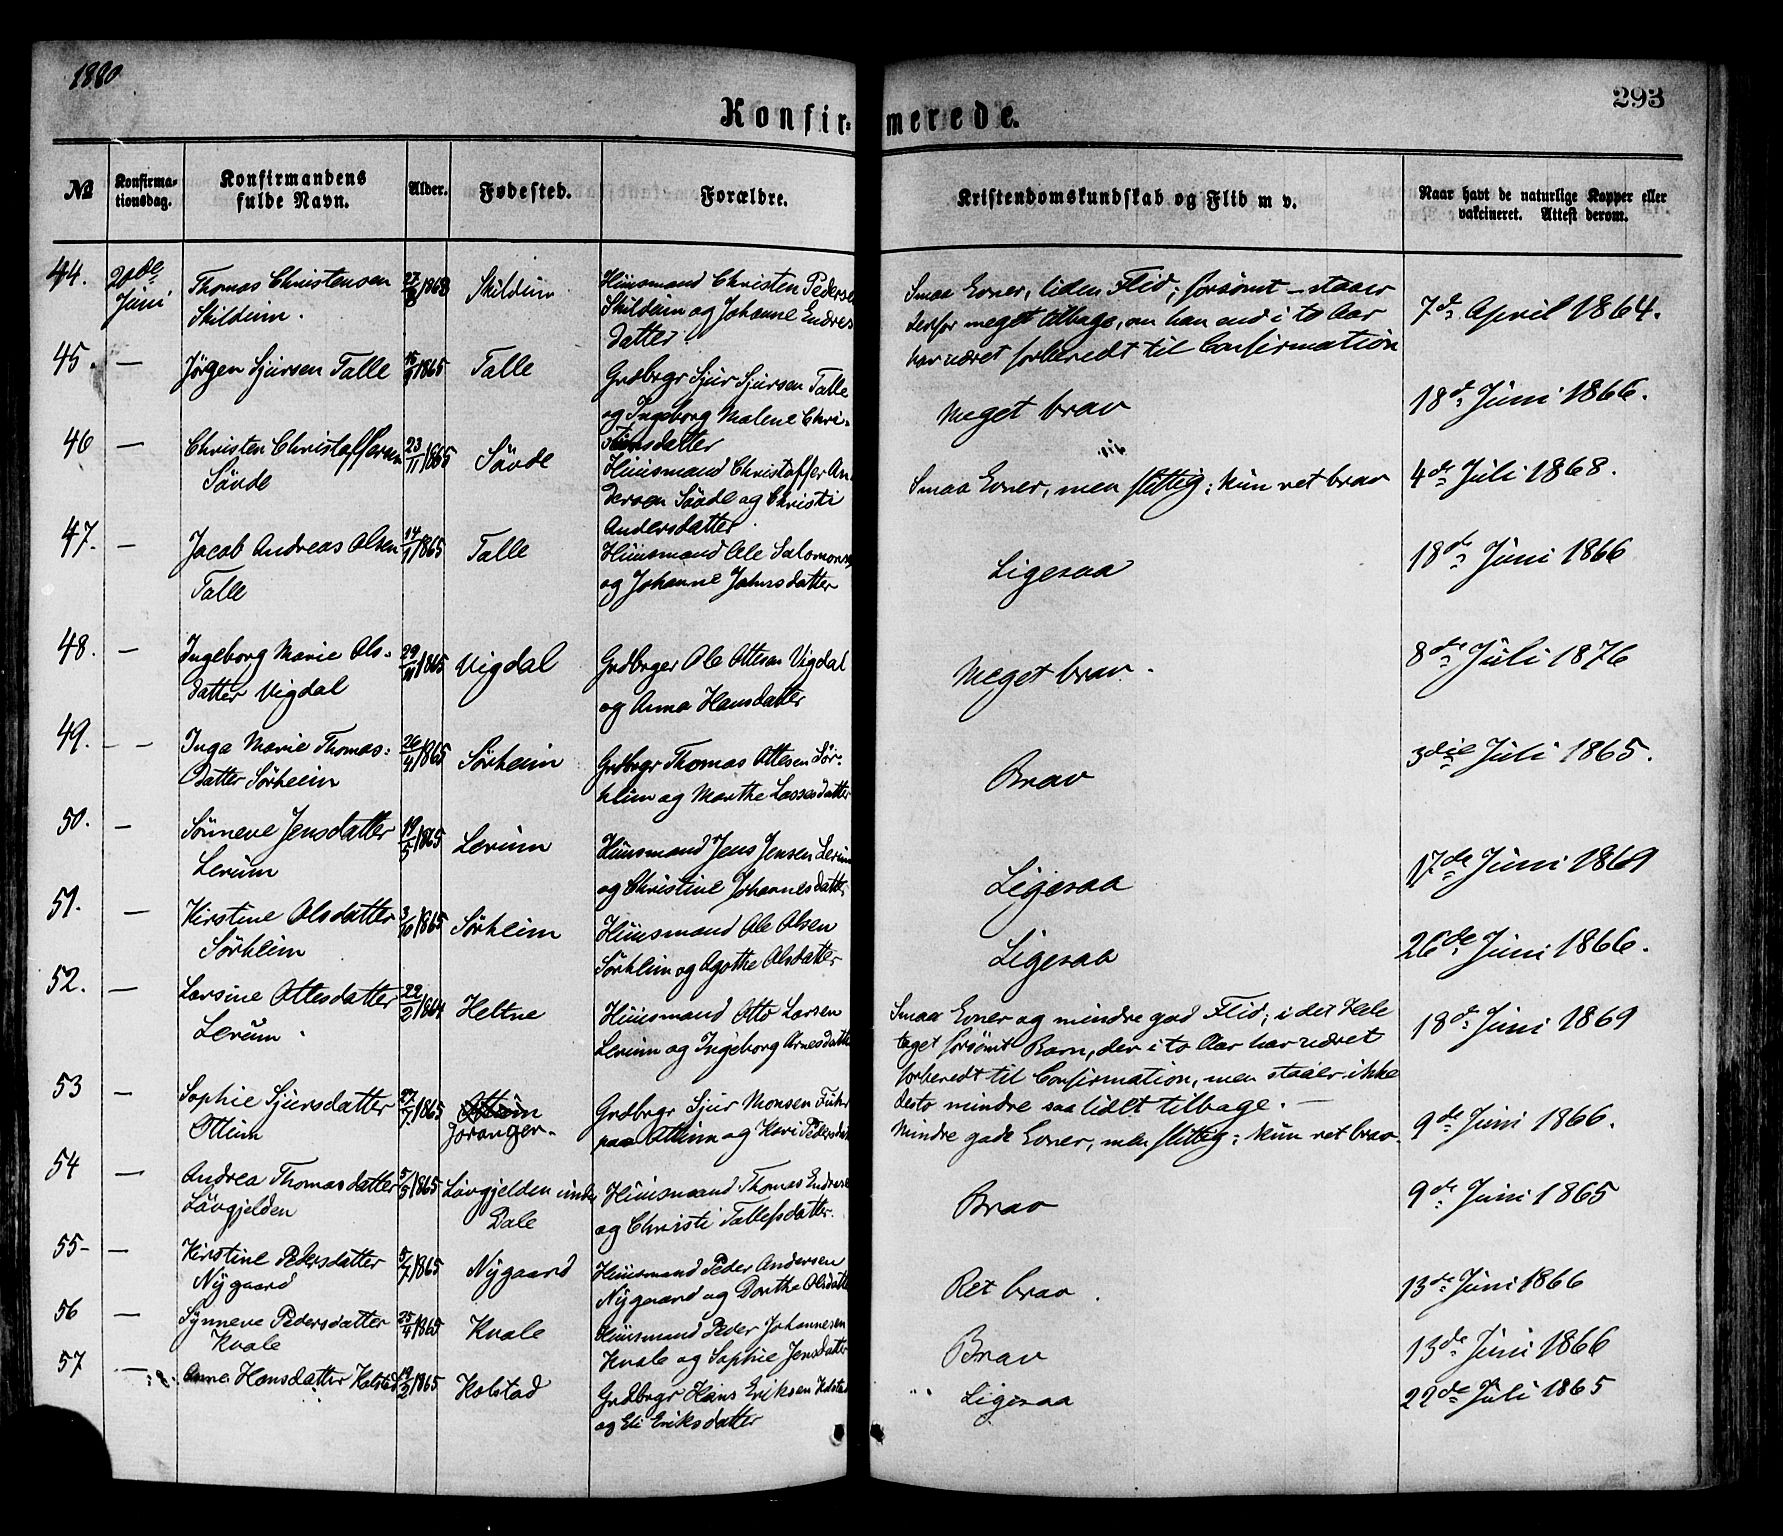 1880
293
Konfir- merede.
№ Konfirma-tionsdag. Konfirmandens fulde Navn. Alder. Fødested. Forældre. Kristendomskundskab og Flid m v. Naar havt de naturlige Kopper eller vakcineret. Attest derom.
44. 20de Juni Thomas Christensen 1863 Skildum Huusmand Christen Peders Smaa Evner, liden Flid; forsømt – staaer 7de April 1864.
Skildum. Skildum og Johanne Endres derfor meget tilbage, om han end i to Aar
datter har været forberedt til Confirmation
45. — Jørgen Sjursen Talle 1865 Talle Grdbrgr Sjur Sjursen Talle Meget brav 18de Juni 1866.
og Ingeborg Malene Chri-
stensdatter
46 — Christen Christoffersen 23/11 1865 Søvde Huusmand Christoffer An Smaa Evner, men flittig; kun ret brav 4de Juli 1868.
Søvde dersen Søvde og Christi
Andersdatter
47. — Jacob Andreas Olsen 14/1 1865 Talle Huusmand Ole Salomons Ligesaa 18de Juni 1866
Talle og Johanne Johnsdatter
48. — Ingeborg Marie Ols- 1865 Vigdal Grdbrger Ole Ottesen Vigdal Meget brav. 8de Juli 1876
datter Vigdal og Anna Hansdatter
49. — Inga Marie Thomas- 26/4 1865 Sørheim Grdbrgr Thomas Ottesen Sør- Brav 3die Juli 1865.
datter Sørheim heim og Marthe Lassesdatter
50. — Sønneve Jensdatter 19/5 1865 Lerum Huusmand Jens Jensen Lerum Ligesaa 17de Juni 1869
Lerum og Christine Johannesdatte
51. — Kirstine Olsdatter 3/6 1865 Sørheim Huusmand Ole Olsen Ligesaa 26de Juni 1866.
Sørheim Sørheim og Agathe Olsdatter
52. — Larsine Ottesdatter 22/2 1864 Heltne Huusmand Otto Larsen Smaa Evner og mindre god Flid; i det Hele 18de Juni 1869
Lerum. Lerum og Ingeborg Arnesdatte taget forsømt Barn, der i to Aar har været
forberedt til Confirmation, men staaer ikke
desto mindre saa lidet tilbage. —
53 — Sophie Sjursdatter 27/7 1865 Ottum Joranger. Grdbrgr Sjur Monsen Fuhr Mindre gode Evner, men flittig; kun ret brav 9de Juni 1866.
Ottum paa Ottum og Kari Pedersdat
54 — Andrea Thomasdatter 5/5 1865 Løvgjelden under Huusmand Thomas Endrese Brav 9de Juni 1865
Løvgjelden Dale og Christi Tollefsdatter.
55- — Kirstine Pedersdatter 5/7 1865 Nygaard Huusmand Peder Andersen Ret brav. 13de Juni 1866
Nygaard Nygaard og Dorthe Olsdatte
56 — Synneve Pedersdatter 25/4 1865 Kvale Huusmand Peder Johannesen Brav 13de Juni 1866
Kvale Kvale og Sophie Jensdatter
57 — Anne Hansdatter Kolstad 19/2 1865 Kolstad Grdbrgr Hans Eriksen Kolstad Ligesaa 22de Juli 1865
og Eli Eriksdatter